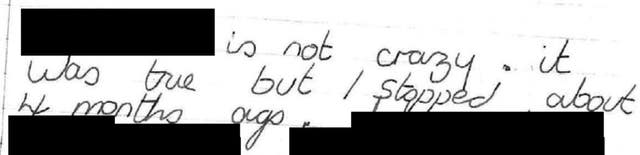 is not crazy. it
was true but I stopped about
4 months ago.